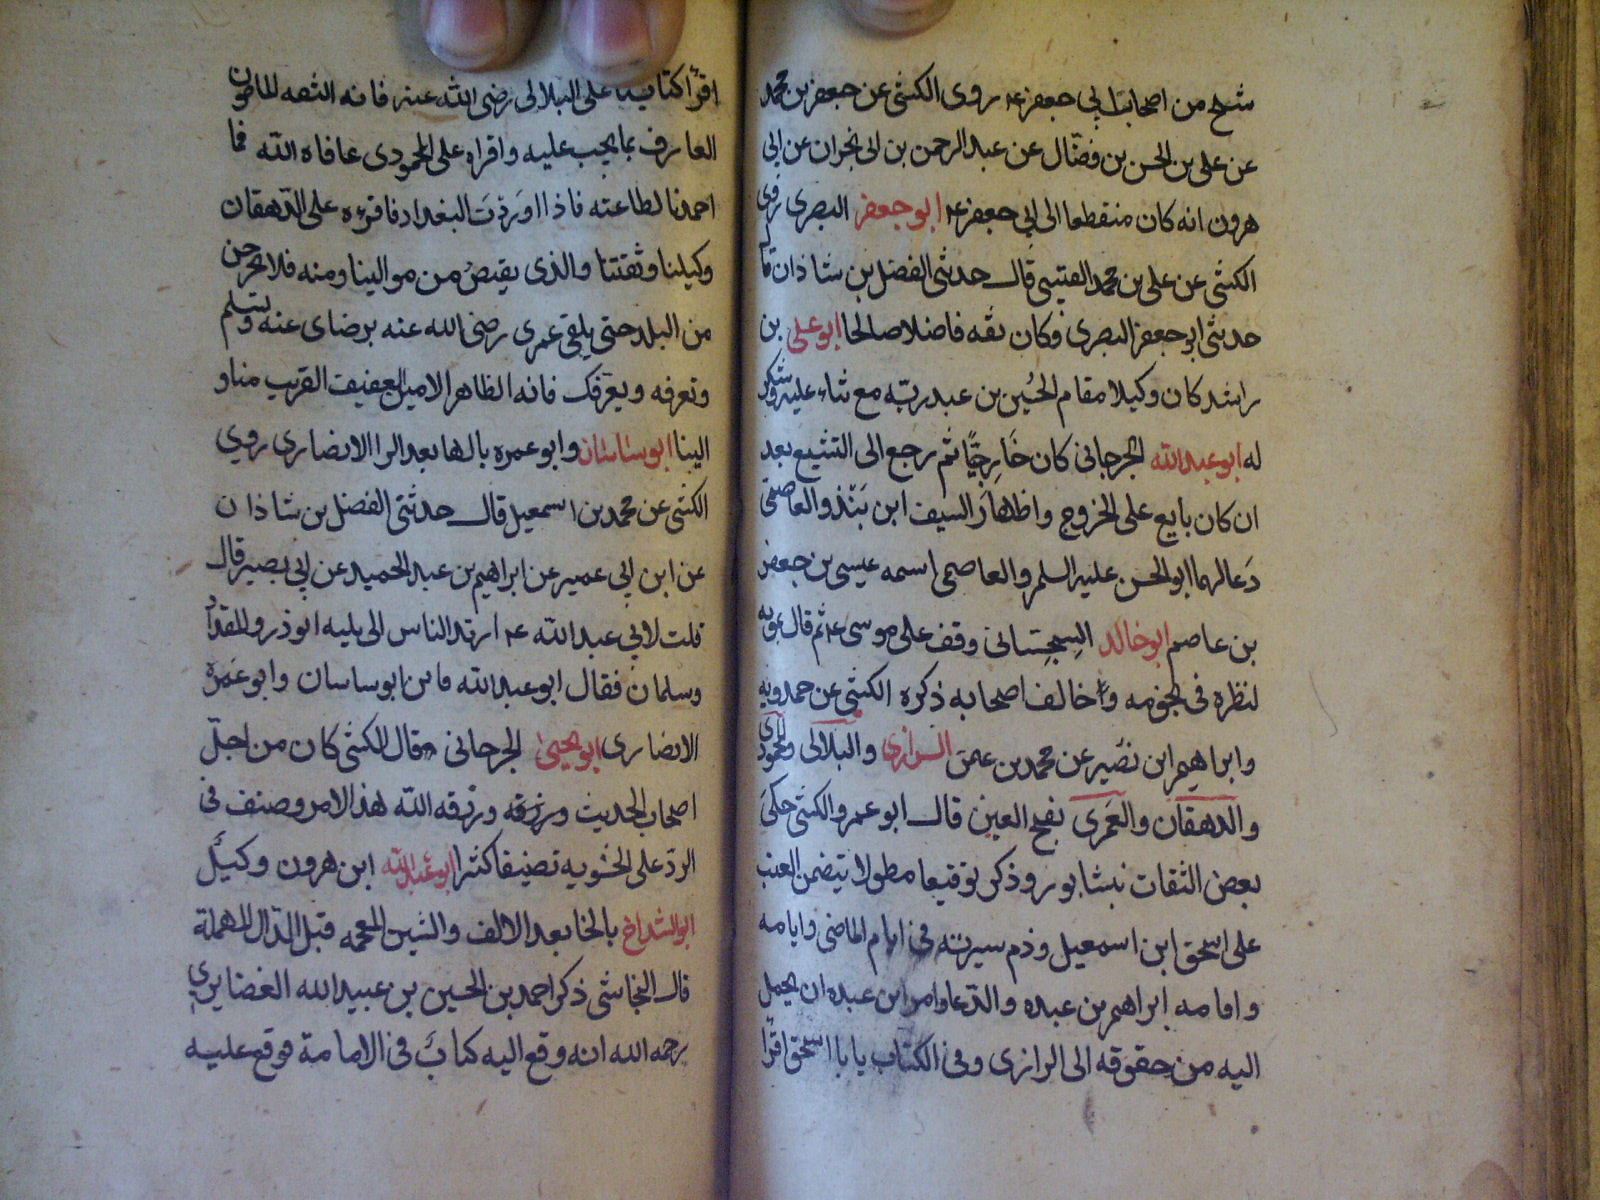 شيخ من اصحابنا ابي جعفر ع روى الكشى عن جعفر بن محمد
عن على بن الحسن بن فضّال عن عبد الرحمن بن ابى نجران عن ابى
هرون انه كان منقطعا الى ابي جعفر ع ابو جعفر البصرى روى
الكشى عن على بن محمد القتيبى قال حدثنى الفضل بن شاذان قال
حدثنى ابو جعفر البصرى وكان ثقه فاضلا صالحا ابو على بن
راشد كان وكيلا مقام الحُسين بن عبد ربّه مع ثناء عليه وشكر
له ابو عبد الله الجرجانى كان خَارِجيًّا ثم رجع الى التشيع بعد
ان كان بايع على الخروج واظهار السيف ابن بَنْد والعاصمى
دَعا لهما ابو الحسن عليه السلم والعاصمى اسمه عيسى بن جعفر
بن عاصم ابو خالد السِجِستانى وقف على موسى ع ثم قال بموته
لنظره فى نجومه وخالف اصحابه ذكره الكشى عن حمدويه
وابراهيم ابن نصُير عن محمد بن عمن الرازى والبلالى والمحمودى
والدهقان والعَمَرى بفتح العين قال ابو عمرو الكشى حكىَ
بعض الثقات بنشابور وذكر توقيعا مطولا يتضمن العتب
على اسحق ابن اسمعيل وذم سيرته فى ايام الماضى وايامه
واقامه ابراهيم بن عبده والدّعا وامر ابن عبده ان يحمل
اليه من حقوقه الى الرازى وفى الكتاب يا با اسحق اقرا
اقرأ كتابنا على البلالى رضى الله عنه فانه الثقه المامون
العارف بما يجب عليه واقراه على المحمودى عافاه الله فما
احمدنا لطاعته فاذا اوَردْتَ البغداد فاقرءه على الدّهقان
وكيلنا وثقتنا والذى يقبضُ من موالينا ومنه فلا تخرجن
من البلد حتى يلقى عمرى رضى الله عنه برضاى عنه وتسلم
وتعرفه ويعرفك فانه الطاهر الامين العفيف القريب منا و
الينا ابو ساسان وابو عمره بالها بعد الرا الانصارى روى
الكشى عن محمد بن اسمعيل قال حدثنى الفضل بن شاذان
عن ابن ابى عمير عن ابراهيم بن عبد الحميد عن ابي بصير قال
قلت لابي عبد الله ع ارتد الناس الى يليه ابوذر والمقداد
وسلمان فقال ابو عبد الله فاين ابو ساسان وابو عَمره
الانصارى ابو يحيىٰ الجرجانى قال الكشى كان من اجلّ
اصحاب الحديث ورزقه ورزقه الله هذا الامر وصنف فى
الردّ على الحشويه تصنيفا كثيرا ابو عبد الله ابن هرون وكيلٌ
ابو الشداخ بالخا بعد الالف والشين المعجمه قبل الدّال المهملة
قال النجاشى ذكر احمد بن الحسين بن عبيد الله الغضايرى
رحمه الله انه وقع اليه كتابٌ فى الامامة موقع عليه